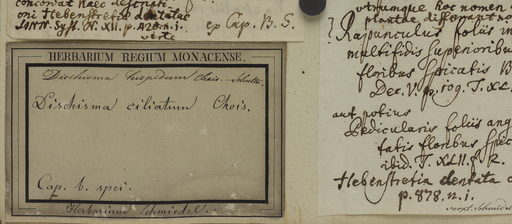 concordat haec descripti
oni Hebenstretiae dentatae
LINN. Syst. N. XII. p. 420. n. 1.
verte
ex Cap. B. S.
HERBARIUM REGIUM MONACENSE.
Dischisma hispidum Chois. Schultz.
Dischisma ciliatum Chois.
Cap. b. spei.
Herbarium Schmiedel.
utrumque hoc nomen
plantae
? Rapunculus foliis in
multifidis superioribus
floribus spicatis B
Dec. V. p. 109. T. XL.
aut potius
Pedicularis foliis ang
tatis floribus spic
ibid. T. XLII. f. 2.
Hebenstretia dentata
p. 878. n. 1.
scrpt. Schmidel